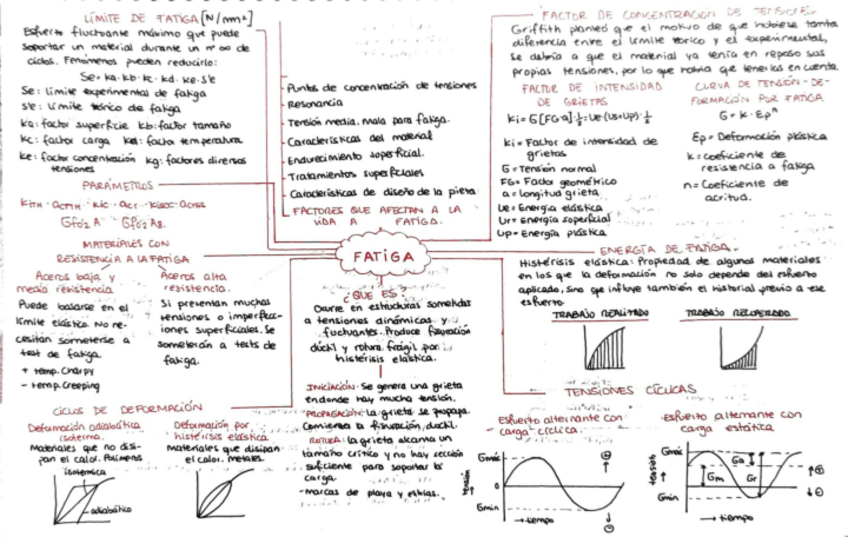 LÍMITE DE FATIGA [N/mm²]
Esfuerzo fluctuante máximo que puede
soportar un material durante un nº ∞ de
ciclos. Fenómenos pueden reducirlo:
Se = ka·kb·kc·kd·ke·S'e
Se: Límite experimental de fatiga
S'e: Límite teórico de fatiga
ka: factor superficie kb: factor tamaño
kc: factor carga kd: factor temperatura
ke: factor concentración kg: factores diversos
tensiones
PARÁMETROS
MATERIALES CON
RESISTENCIA A LA FATIGA
Aceros baja y
media resistencia
Puede basarse en el
límite elástico. No ne-
cesitan someterse a
test de fatiga.
+ temp. Charpy
- temp. Creeping
Aceros alta
resistencia.
Si presentan muchas
tensiones o imperfecc-
iones superficiales. Se
someterán a tests de
fatiga.
CICLOS DE DEFORMACIÓN
Deformación adiabática
isoterma.
Materiales que no disi-
pan el calor. Polímeros
isotérmica
adiabático
Deformación por
histéirsis elástica.
Materiales que disipan
el calor. metales.
- Puntos de concentración de tensiones
- Resonancia
- Tensión media, mala para fatiga.
- Características del material
- Endurecimiento superficial.
- Tratamientos superficiales
- Características de diseño de la pieza
FACTORES QUE AFECTAN A LA
VIDA A FATIGA.
FATIGA
¿QUE ES?
Ocurre en estructuras sometidas
a tensiones dinámicas y
fluctuantes. Produce fisuración
dúctil y rotura frágil por
histérisis elástica.
INICIACIÓN: Se genera una grieta
en donde hay mucha tensión.
PROPAGACIÓN: La grieta se propaga.
Comienza la fisuración, dúctil.
ROTURA: la grieta alcanza un
tamaño crítico y no hay sección
suficiente para soportar la
carga.
- marcas de playa y estrías.
FACTOR DE CONCENTRACIÓN DE TENSIONES
Griffith planteó que el motivo de que hubiese tanta
diferencia entre el límite teórico y el experimental,
se debía a que el material ya tenía en reposo sus
propias tensiones, por lo que habría que tenerlas en cuenta.
FACTOR DE INTENSIDAD
DE GRIETAS
Ki = Factor de intensidad de
grietas
G = Tensión normal
FG = Factor geométrico
a = longitud grieta
Ue = Energía elástica
Ur = Energía superficial
Up = Energía plástica
CURVA DE TENSIÓN-DE-
FORMACIÓN POR FATIGA
G = K·Epⁿ
Ep = Deformación plástica
k = coeficiente de
resistencia a fatiga
n = Coeficiente de
acritud.
ENERGÍA DE FATIGA.
Histérisis elástica: Propiedad de algunos materiales
en los que la deformación no solo depende del esfuerzo
aplicado, sino que influye también el historial previo a ese
esfuerzo.
TRABAJO REALIZADO
TRABAJO RECUPERADO
TENSIONES CÍCLICAS
- Esfuerzo alternante con
carga cíclica.
Gmáx
0
Gmin
tensión
→ tiempo
esfuerzo alternante con
carga estática
Gmáx
Gmin
Gm
Ga
Gr
tensión
→ tiempo